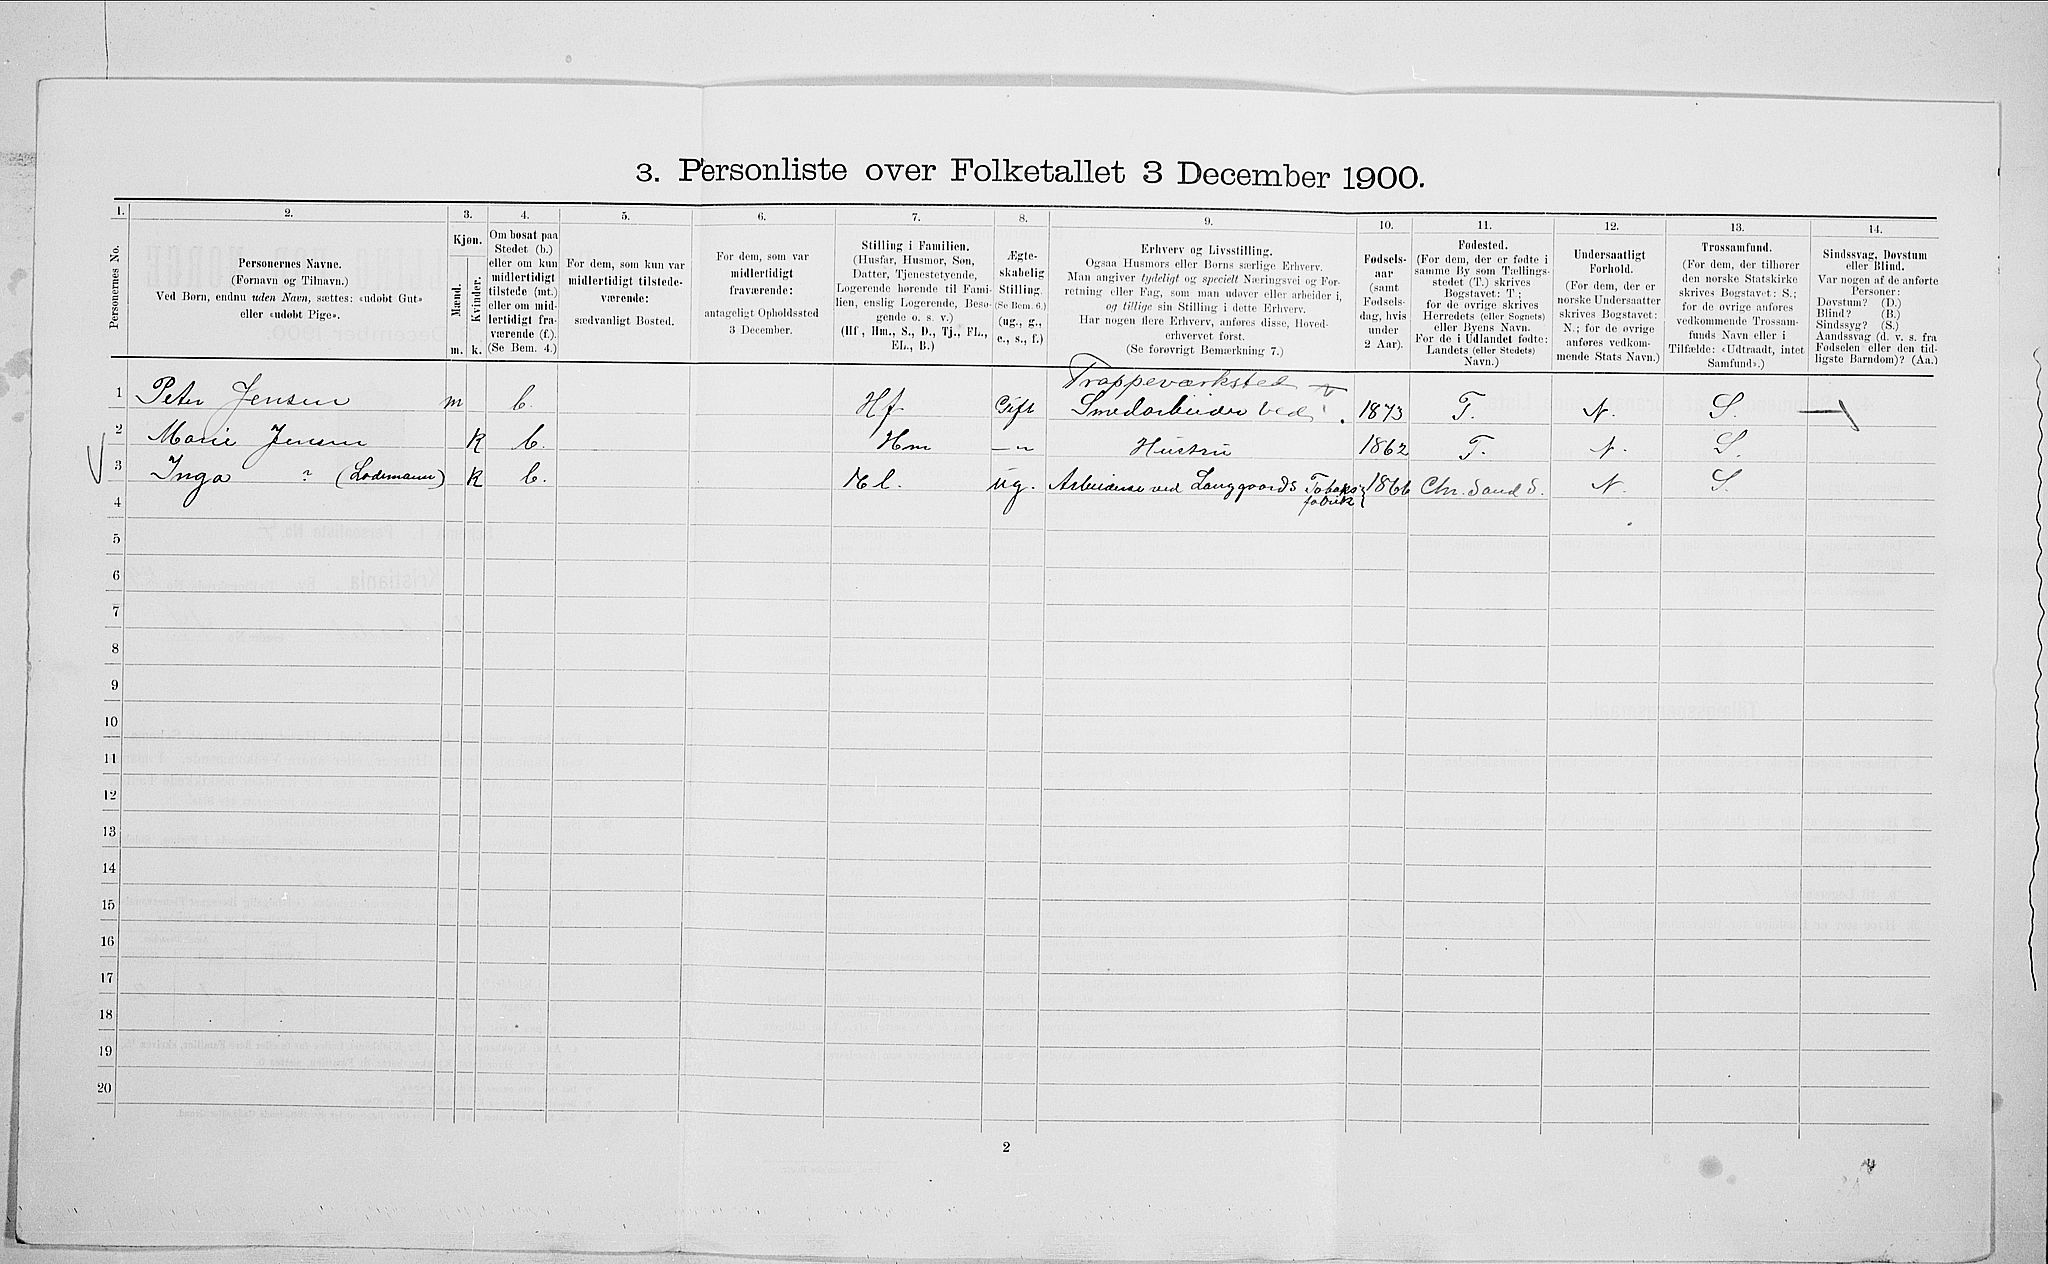 3. Personliste over Folketallet 3 December 1900.
1. 2. 3. 4. 5. 6. 7. 8. 9. 10. 11. 12. 13. 14.
Personernes No.
Personernes Navne.
(Fornavn og Tilnavn.)
Ved Børn, endnu uden Navn, sættes: «udøbt Gut»
eller «udøbt Pige».
Kjøn.
Mænd.
Kvinder.
m. k.
Om bosat paa
Stedet (b.)
eller om kun
midlertidigt
tilstede (mt.)
eller om mid-
lertidigt fra-
værende (f.).
(Se Bem. 4.)
For dem, som kun var
midlertidigt tilstede-
værende:
sædvanligt Bosted.
For dem, som var
midlertidigt
fraværende:
antageligt Opholdssted
3 December.
Stilling i Familien.
(Husfar, Husmor, Søn,
Datter, Tjenestetyende,
Logerende hørende til Fami-
lien, enslig Logerende, Besø-
gende o. s. v.)
(Hf, Hm., S., D., Tj., FL.,
EL., B.)
Ægte-
skabelig
Stilling.
(Se Bem. 6.)
(ug., g.,
e., s., f.)
Erhverv og Livsstilling.
Ogsaa Husmors eller Børns særlige Erhverv.
Man angiver tydeligt og specielt Næringsvei og For-
retning eller Fag, som man udøver eller arbeider i,
og tillige sin Stilling i dette Erhverv.
Har nogen flere Erhverv, anføres disse, Hoved-
erhvervet først.
(Se forøvrigt Bemærkning 7.)
Fødsels-
aar
(samt
Fødsels-
dag, hvis
under
2 Aar).
Fødested.
(For dem, der er fødte i
samme By som Tællings-
stedet (T.) skrives
Bogstavet: T;
for de øvrige skrives
Herredets (eller Sognets)
eller Byens Navn.
For de i Udlandet fødte:
Landets (eller Stedets)
Navn.)
Undersaatligt
Forhold.
(For dem, der er
norske Undersaatter
skrives Bogstavet:
N.; for de øvrige
anføres vedkom-
mende Stats Navn.)
Trossamfund.
(For dem, der tilhører
den norske Statskirke
skrives Bogstavet: S.;
for de øvrige anføres
vedkommende Trossam-
funds Navn eller i
Tilfælde: «Udtraadt, intet
Samfund».)
Sindssvag, Døvstum
eller Blind.
Var nogen af de anførte
Personer:
Døvstum? (D.)
Blind? (B.)
Sindssyg? (S.)
Aandssvag (d. v. s. fra
Fødselen eller den tid-
ligste Barndom)? (Aa.)
Trappeværksted
1 Peter Jensen m b. Hf Gift Smedarbeider ved 1873 T. N. S. —
2 Marie Jensen K b. Hm —„— Hustru 1862 T. N. S.
3 Inga ? (Lodemann) K b. El. ug. Arbeiderse ved Langgaards Tobaks 1866 Chr. Sand S. N. S.
fabrik
4
5
6
7
8
9
10
11
12
13
14
15
16
17
18
19
20
2